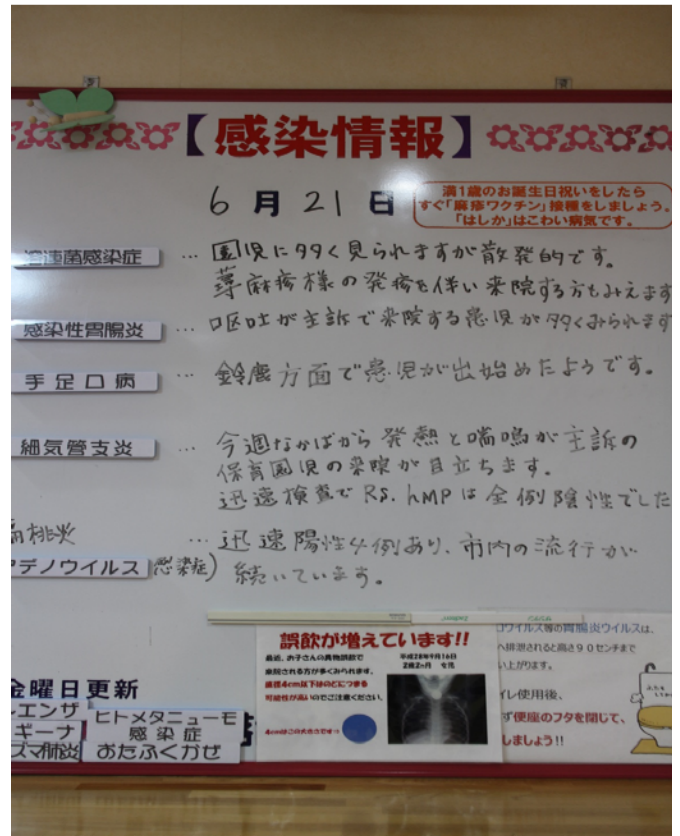 【感染情報】
6月21日
満1歳のお誕生日祝いをしたら
すぐ「麻疹ワクチン」接種をしましょう。
「はしか」はこわい病気です。
溶連菌感染症 … 園児に多く見られますが散発的です。
蕁麻疹様の発疹を伴い来院する方もみえます
感染性胃腸炎 … 嘔吐が主訴で来院する患児が多くみられます
手足口病 … 鈴鹿方面で患児が出始めたようです。
細気管支炎 … 今週なかばから発熱と喘鳴が主訴の
保育園児の来院が目立ちます。
迅速検査でRS.hMPは全例陰性でした
扁桃炎 … 迅速陽性4例あり、市内の流行が
アデノウイルス(感染症) 続いています。
金曜日更新
エンザ
ギーナ
ズマ肺炎
ヒトメタニューモ
感染症
おたふくかぜ
誤飲が増えています!!
最近、お子さんの異物誤飲で
来院される方が多くみられます。
直径4cm以下はのどにつまる
可能性が高いのでご注意ください。
4cmはこの大きさです→
平成28年9月16日
2歳2ヶ月 女児
ロウイルス等の胃腸炎ウイルスは、
排泄されると高さ90センチまで
い上がります。
イレ使用後、
ず便座のフタを閉じて、
しましょう!!